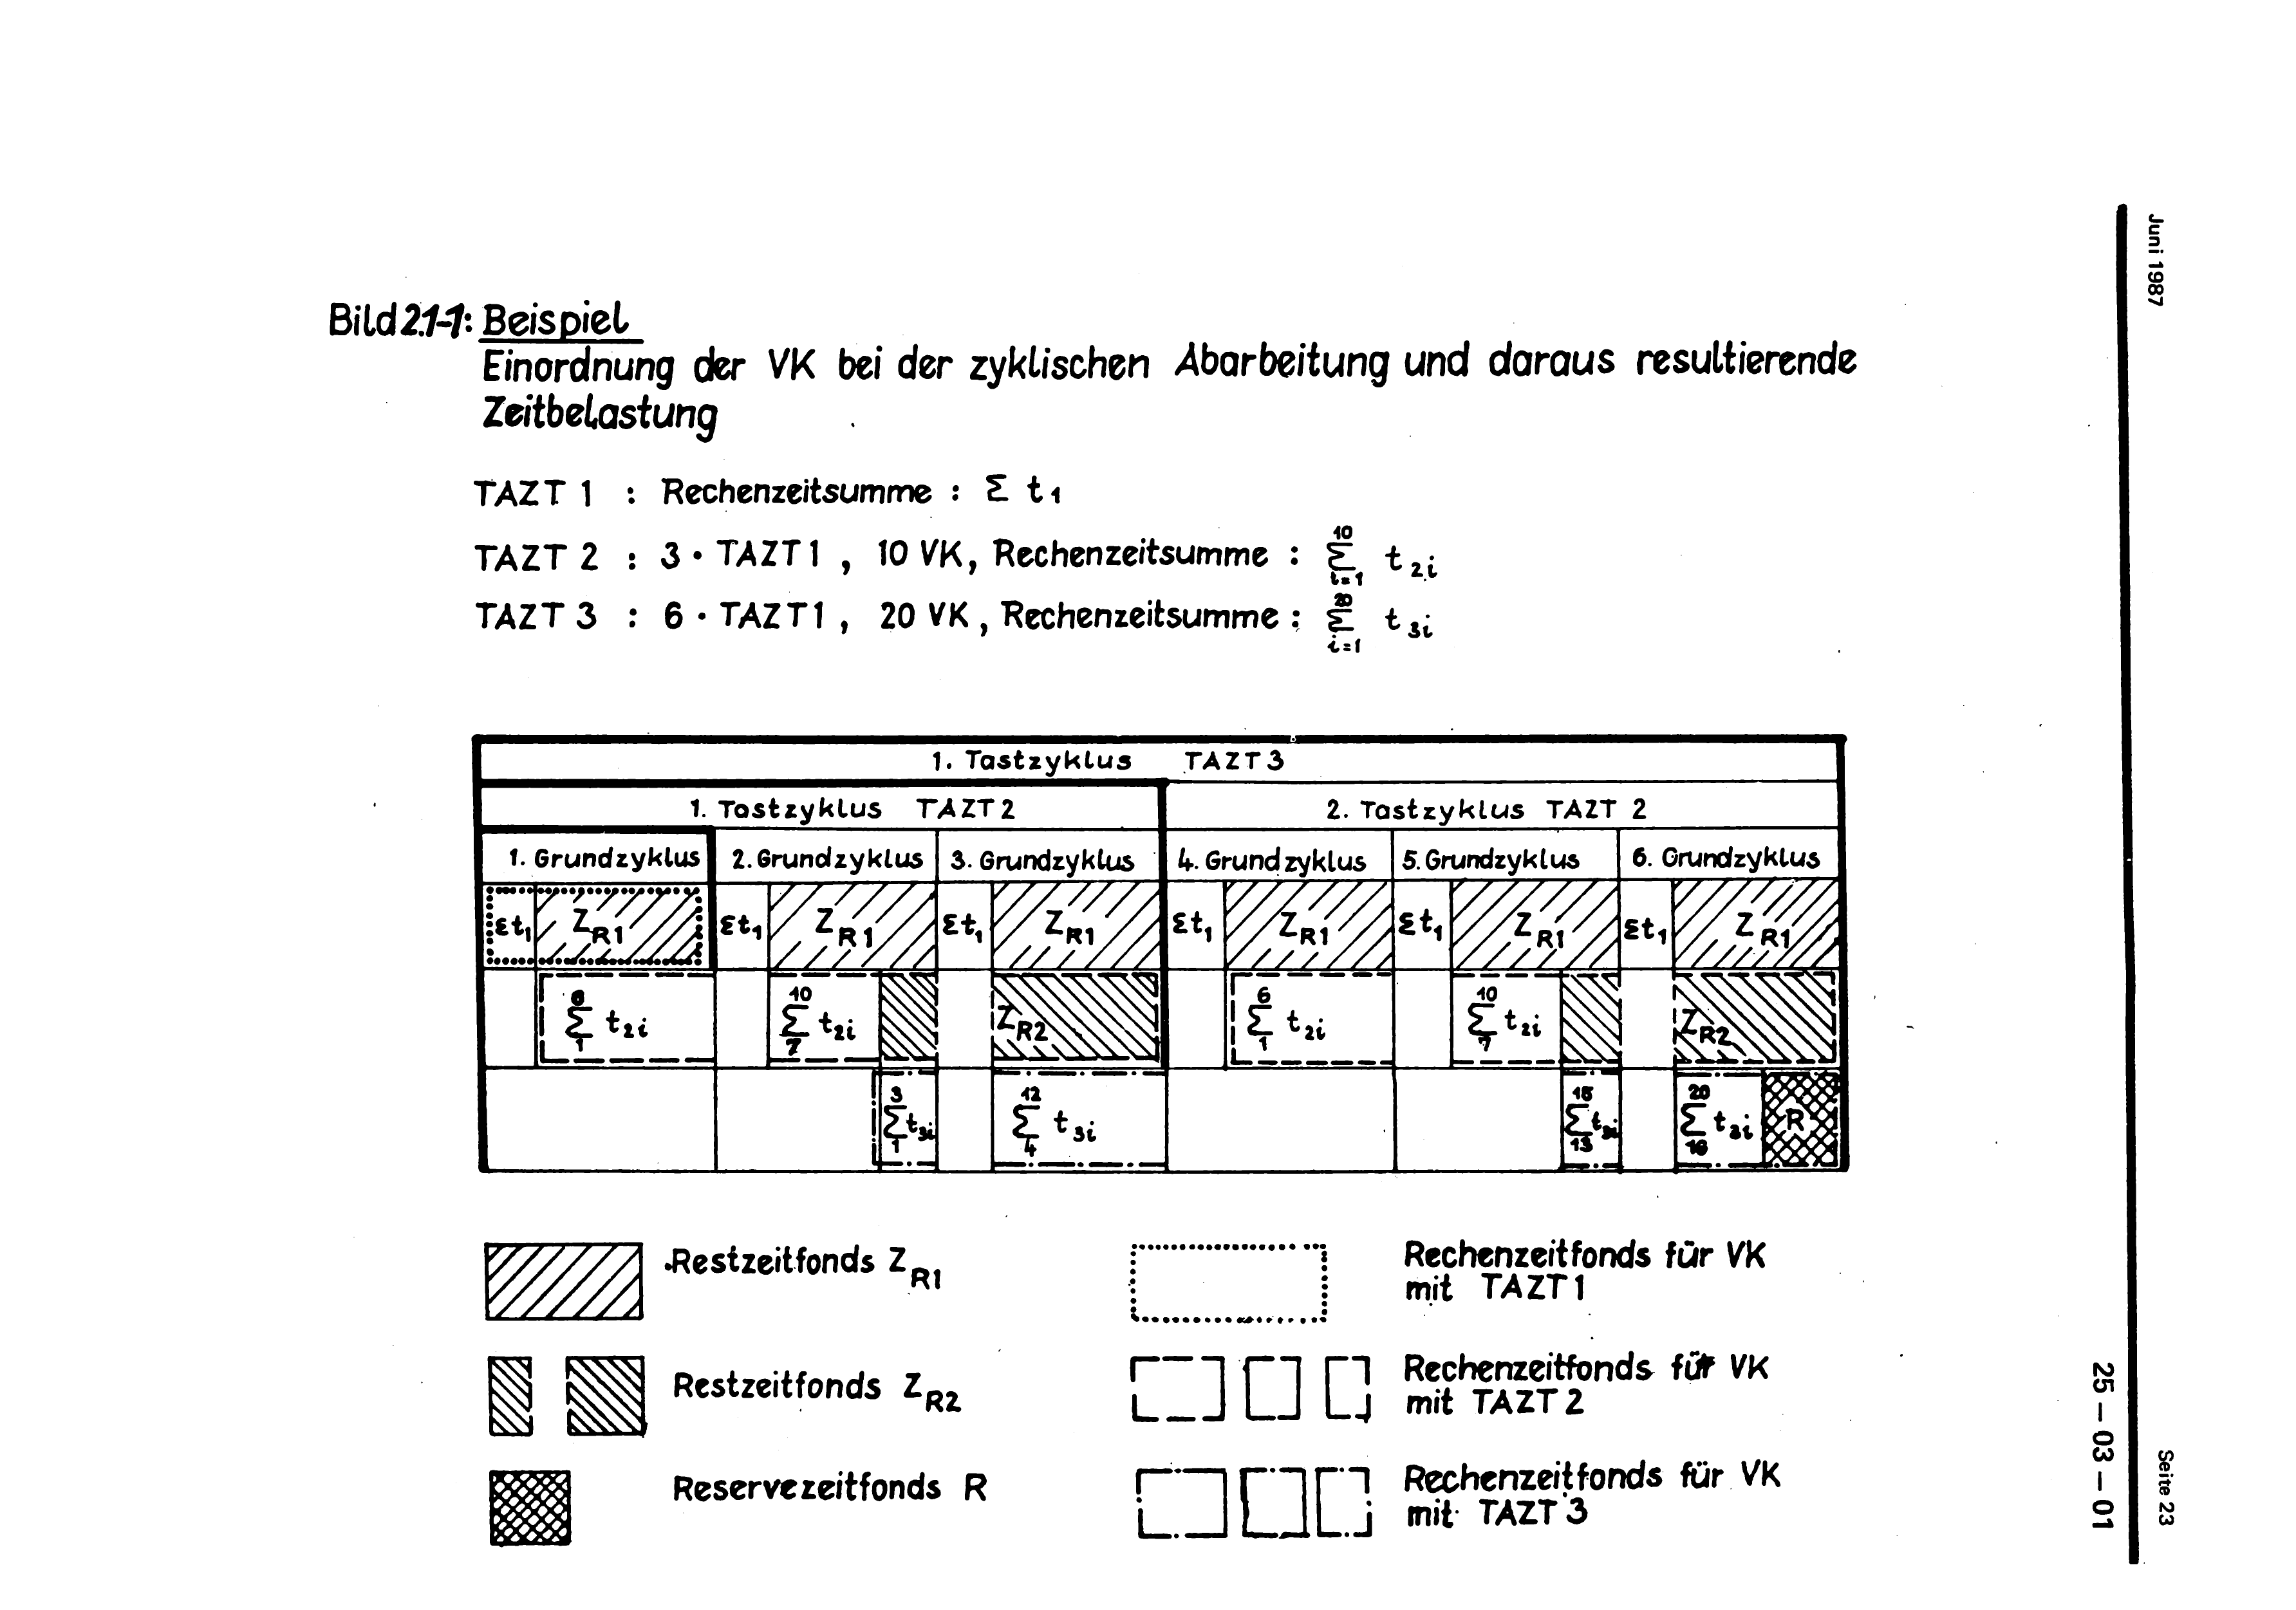 Juni 1987
Bild 2.1-1: Beispiel
Einordnung der VK bei der zyklischen Abarbeitung und daraus resultierende
Zeitbelastung
TAZT 1 : Rechenzeitsumme : Σ t₁
TAZT 2 : 3 · TAZT 1 , 10 VK, Rechenzeitsumme : 10 Σ i=1 t 2i
TAZT 3 : 6 · TAZT 1 , 20 VK, Rechenzeitsumme : 20 Σ i=1 t 3i
1. Tastzyklus TAZT 3
1. Tastzyklus TAZT 2 2. Tastzyklus TAZT 2
1. Grundzyklus 2. Grundzyklus 3. Grundzyklus 4. Grundzyklus 5. Grundzyklus 6. Grundzyklus
Σt₁ Z R1 Σt₁ Z R1 Σt₁ Z R1 Σt₁ Z R1 Σt₁ Z R1 Σt₁ Z R1
6 Σ 1 t 2i 10 Σ 7 t 2i Z R2 6 Σ 1 t 2i 10 Σ 7 t 2i Z R2
3 Σ 1 t 3i 12 Σ 4 t 3i 15 Σ 13 t 3i 20 Σ 16 t 3i R
Restzeitfonds Z R1
Rechenzeitfonds für VK
mit TAZT 1
Restzeitfonds Z R2
Rechenzeitfonds für VK
mit TAZT 2
Reservezeitfonds R
Rechenzeitfonds für VK
mit TAZT 3
25 – 03 – 01
Seite 23